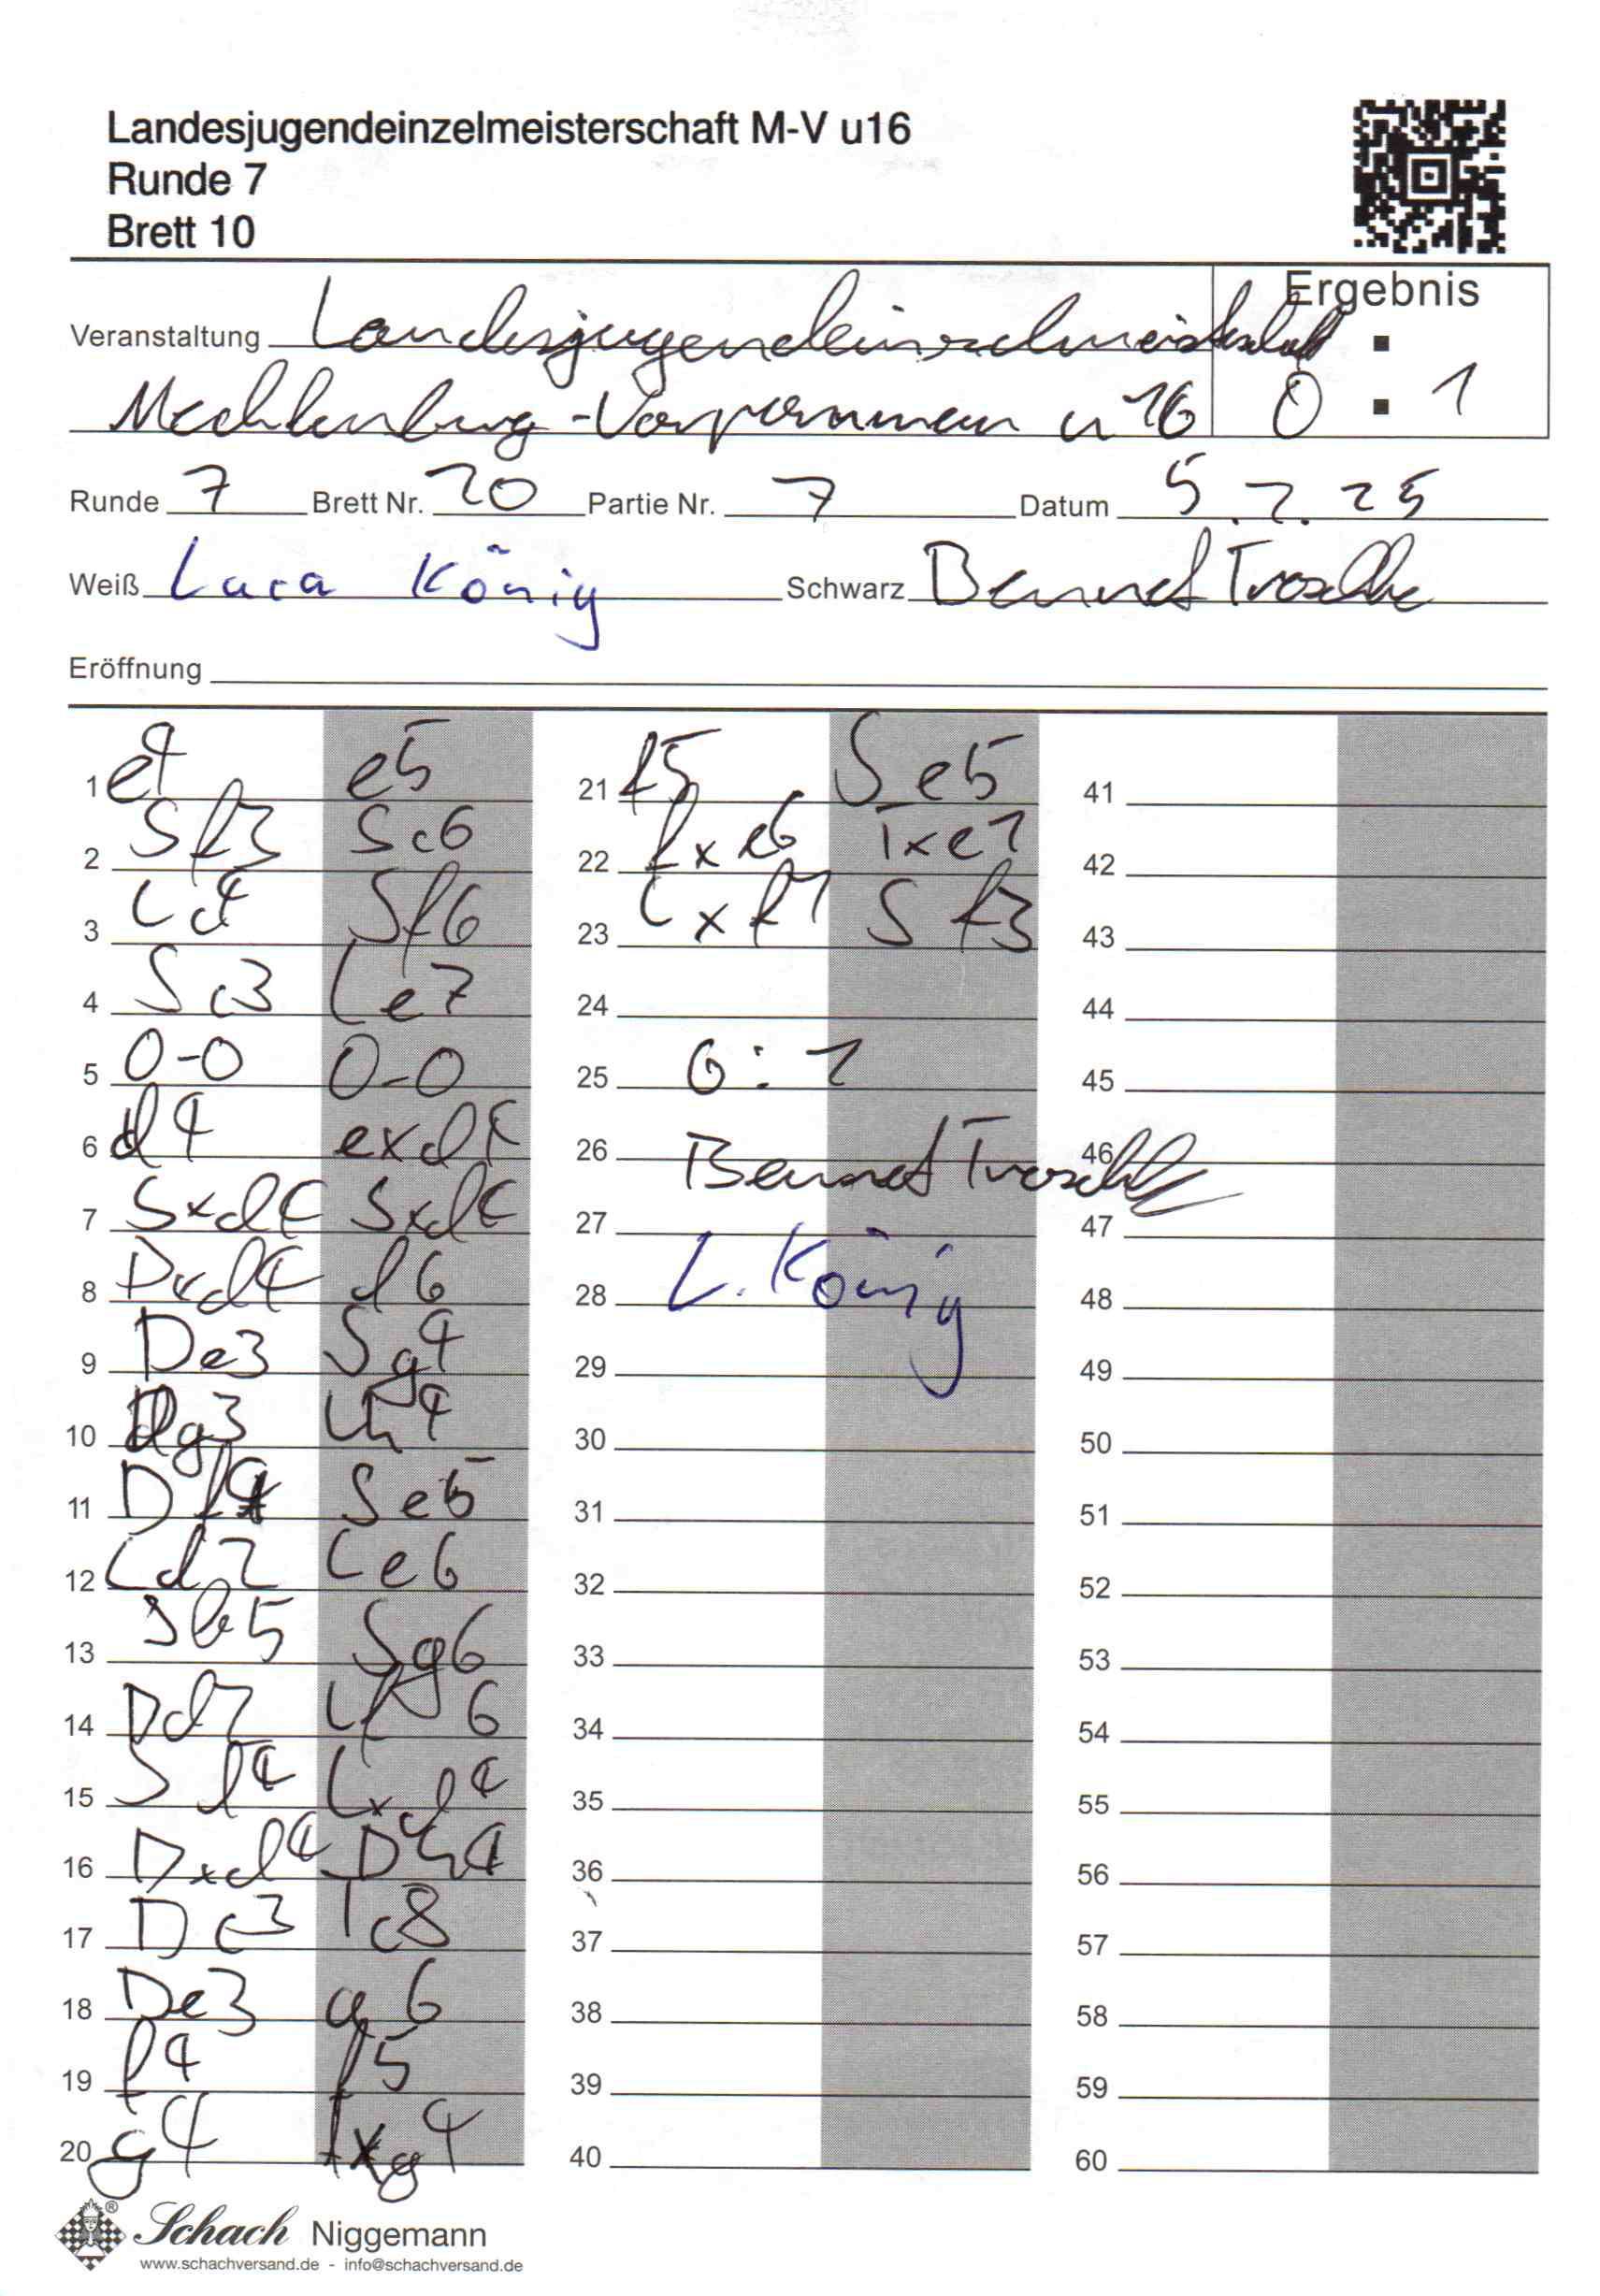 Landesjugendeinzelmeisterschaft M-V u16
Runde 7
Brett 10
Ergebnis
Veranstaltung Landesjugendeinzelmeisterschaft
Mecklenburg-Vorpommern u16 0 : 1
Runde 7 Brett Nr. 10 Partie Nr. 7 Datum 5.2.25
Weiß Luca König Schwarz Bennet
Eröffnung
1 e4 e5
2 Sf3 Sc6
3 Lc4 Sf6
4 Sc3 Le7
5 0-0 0-0
6 d4 exd4
7 Sxd4 Sxd4
8 Dxd4 d6
9 De3 Sg4
10 Dg3 Lh4
11 Df4 Se5
12 Ld2 Le6
13 Sb5 Sg6
14 Lf6
15 Sd4 Lxd4
16 Dxd4 Dh4
17 Dc3 Tc8
18 De3 a6
19 f4 f5
20 g4 fxg4
21 f5 Se5
22 fxe6 Txe1
23 Lxf1 Sf3
24
25 0:1
26 Bennet
27
28 L. König
29
30
31
32
33
34
35
36
37
38
39
40
41
42
43
44
45
46
47
48
49
50
51
52
53
54
55
56
57
58
59
60
Schach Niggemann
www.schachversand.de - info@schachversand.de